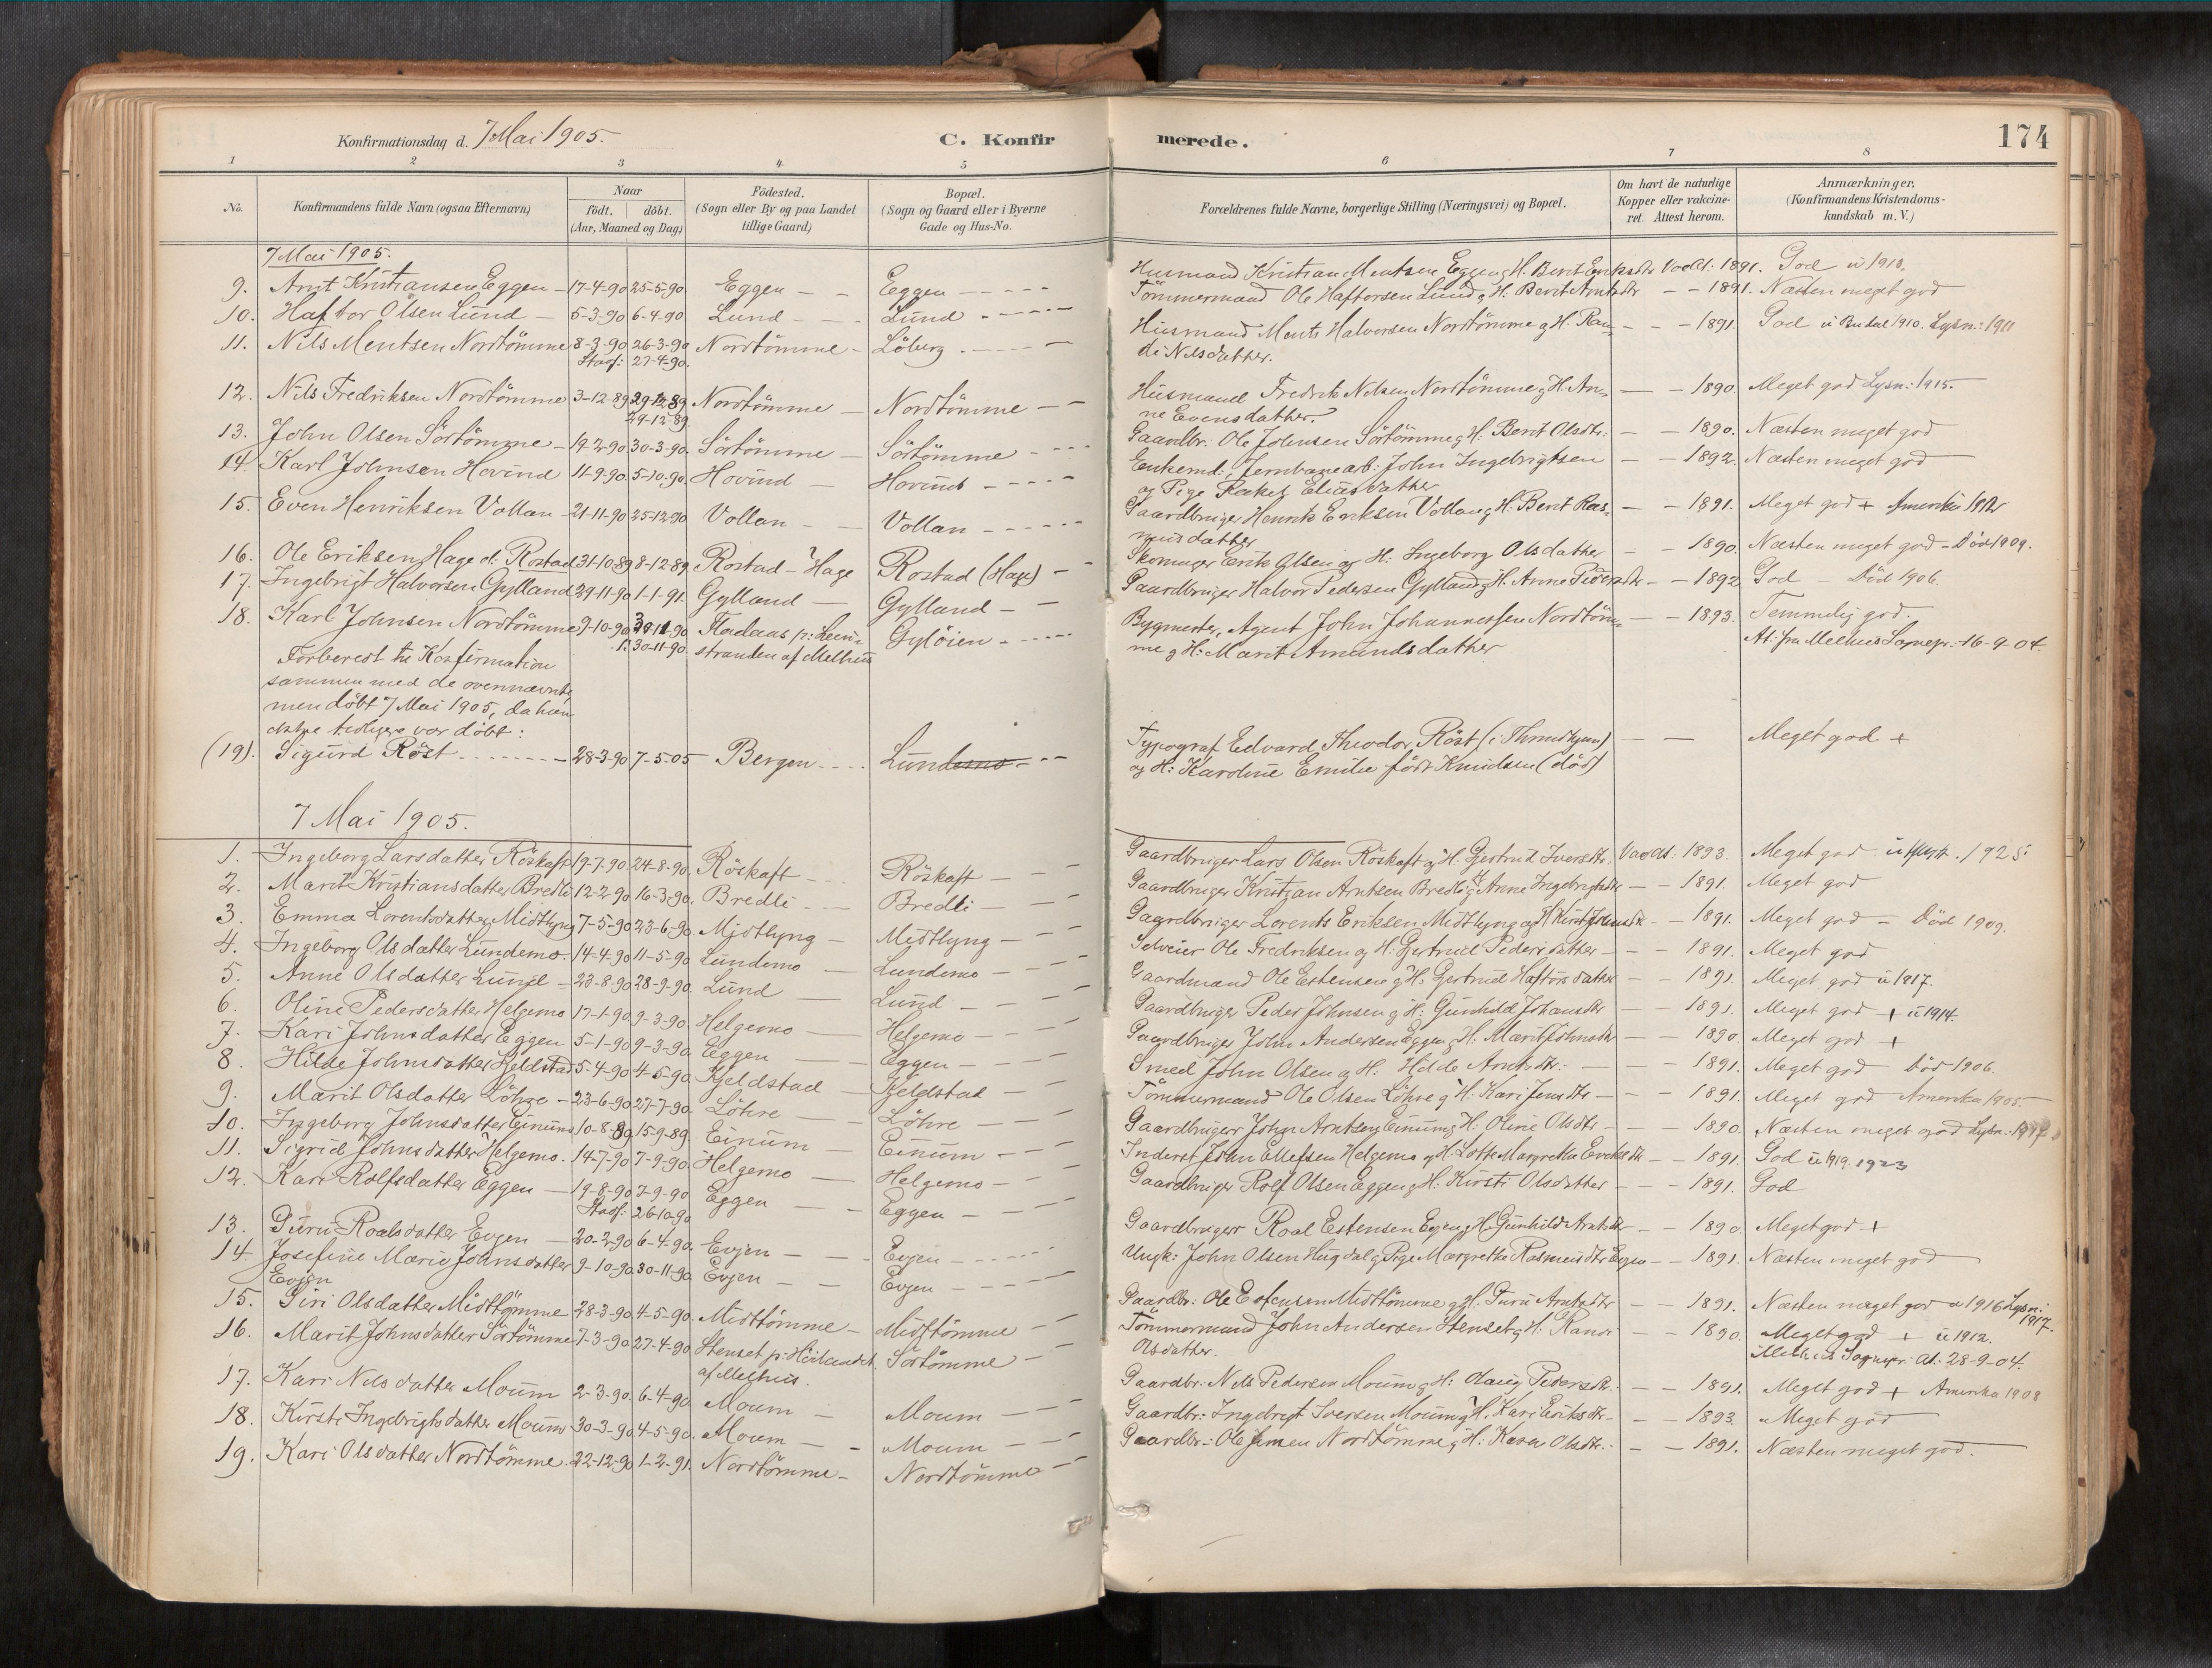 Konfirmationsdag d. 7 Mai 1905. C. Konfir merede. 174
1 2 3 4 5 6 7 8
No. Konfirmandens fulde Navn (ogsaa Efternavn) Naar födt. döbt. (Aar, Maaned og Dag) Födested. (Sogn eller By og paa Landet tillige Gaard) Bopæl. (Sogn og Gaard eller i Byerne Gade og Hus-No. Forældrenes fulde Navne, borgerlige Stilling (Næringsvei) og Bopæl. Om havt de naturlige Kopper eller vakcineret. Attest herom. Anmærkninger. (Konfirmandens Kristendomskundskab m. V.)
7 Mai 1905.
9. Arnt Kristiansen Eggen 17-4-90 25-5-90 Eggen Eggen Husmand Kristian Mentsen Eggen g H. Berit Eriksdtr Vacct: 1891. God ü 1913.
10. Haftor Olsen Lund 5-3-90 6-4-90 Lund Lund Tömmermand Ole Haftorsen Lund g H: Berit Arntsdtr 1891. Næsten meget god
11. Nils Mentsen Nordtömme 8-3-90 26-3-90 Nordtömme Löberg Husmand Ments Halvorsen Nordtömme g H. Ran- 1891. God ü Budal 1910. Lysn: 1911
Stadf: 27-4-90. di Nilsdatter.
12. Nils Fredriksen Nordtömme 3-12-89 Nordtömme Nordtömme Husmand Fredrik Nilsen Nordtömme g H. An- 1890. Meget god Lysn: 1915.
29-12-89 ne Evensdatter.
13. John Olsen Sörtömme 19-2-90 30-3-90. Sörtömme Sörtömme Gaardbr. Ole Johnsen Sörtömme g H: Berit Olsdtr: 1890. Næsten meget god
14. Karl Johnsen Hovind 11-9-90. 5-10-90. Hovind Hovind Enkemd: Jernbanearb: John Ingebrigtsen 1892. Næsten meget god
og Pige Rakel Eliasdatter
15. Even Henriksen Vollan 21-11-90 25-12-90 Vollan Vollan Gaardbruger Henrik Eriksen Vollan g H. Berit Ras- 1891. Meget god + Amerika 1912
musdatter
16. Ole Eriksen Hage d: Rostad 31-10-89 8-12-89. Rostad - Hage Rostad (Hage) Skomager Erik Olsen og H: Ingeborg Olsdatter 1890. Næsten meget god - Död 1909.
17. Ingebrigt Halvorsen Gylland 29-11-90 1-1-91. Gylland Gylland Gaardbruger Halvor Pedersen Gylland g H. Anne Pedersdtr 1892 God - Död 1906.
18. Karl Johnsen Nordtömme 9-10-90 Gylöien Bygmester, Agent John Johannessen Nordtöm- 1893. Temmelig god.
30-11-90. stranden af Melhus me g H: Marit Amundsdatter At: fra Melhus Sognepr: 16-9-04.
Forberedt til Konfirmation
sammen med de ovennævnte,
men döbt 7 Mai 1905, da han
ikke tidligere var döbt:
(19). Sigurd Röst 28-3-90 7-5-05 Bergen Lundemo Typograf Edvard Theodor Röst (i Thrndhjem) Meget god +
og H: Karoline Emilie födt Knudsen (död)
7 Mai 1905.
1. Ingeborg Larsdatter Röskaft 19-7-90. 24-8-90. Röskaft Röskaft Gaardbruger Lars Olsen Röskaft g H. Gjertrud Iversdtr. Vacct: 1893. Meget god 1925.
2. Marit Kristiansdatter Bredli 12-2-90 16-3-90. Bredli Bredli Gaardbruger Kristjan Arntsen Bredli g H Anne Ingebrigtsdtr 1891. Meget god
3. Emma Lorentsdatter Midtlyng 7-5-90 23-6-90 Midtlyng Midtlyng Gaardbruger Lorents Eriksen Midtlyng og H. Kirsti Johnsdtr 1891. Meget god - Död 1909.
4. Ingeborg Olsdatter Lundemo. 14-4-90 11-5-90 Lundemo Lundemo Selveier Ole Fredriksen og H: Gjertrud Pedersdatter 1891. Meget god
5. Anne Olsdatter Lund 23-8-90 28-9-90. Lund Lund Gaardmand Ole Estensen g H: Gjertrud Haftorsdatter 1891. Meget god ü 1917.
6. Oline Pedersdatter Helgemo 17-1-90 9-3-90. Helgemo Helgemo Gaardbruger Peder Johnsen g H: Gunhild Johansdtr 1891. Meget god + ü 1914.
7. Kari Johnsdatter Eggen 5-1-90 9-3-90. Eggen Eggen Gaardbruger John Andersen Eggen g H: Marit Johnsdtr 1890. Meget god +
8. Hilde Johnsdatter Kjeldstad 5-4-90 4-5-90. Kjeldstad Kjeldstad Smed John Olsen og H: Hilde Arntsdtr: 1891. Meget god Död 1906.
9. Marit Olsdatter Löhre 23-6-90 27-7-90. Löhre Löhre Tömmermand Ole Olsen Löhre g H: Kari Jensdtr 1891. Meget god Amerika 1905.
10. Ingeborg Johnsdatter Einum 10-8-89 15-9-89. Einum Einum Gaardbruger John Arntsen Einum g H: Oline Olsdtr 1890. Næsten meget god Lysn: 1917
11. Sigrid Johnsdatter Helgemo. 14-7-90 7-9-90. Helgemo Helgemo Inderst John Ellefsen Helgemo g H: Lotte Margrethe 1891. God ü 1919. 1923
12. Kari Rolfsdatter Eggen 19-8-90 7-9-90 Eggen Eggen Gaardbruger Rolf Olsen Eggen g H: Kirsti Olsdatter 1891. God
Stadf: 26-10-90
13. Guru Roalsdatter Evjen 20-2-90 6-4-90. Evjen Evjen Gaardbruger Roal Estensen Evjen g H. Gunhild Arntsdtr 1890. Meget god +
14. Josefine Marie Johnsdatter 9-10-90 30-11-90. Evjen Evjen Ungk: John Olsen Hugdal g Pige Margrethe Rasmusdtr Evjen 1891. Næsten meget god
Evjen
15. Siri Olsdatter Midttömme 28-3-90 4-5-90. Midttömme Midttömme Gaardbr: Ole Estensen Midttömme g H. Guru Arntsdtr 1891. Næsten meget god ü 1916 Lysn: 1917.
16. Marit Johnsdatter Sörtömme 7-3-90 27-4-90 Stenset p: Hölandet Sörtömme Tömmermand John Andersen Stenset g H: Randi 1890. Meget god + ü 1912.
af Melhus. Olsdatter. Melhus Sognepr: At: 28-9-04.
17. Kari Nilsdatter Moum 2-3-90. 6-4-90. Moum Moum Gaardbr: Nils Pedersen Moum g H: Olaug Pedersdtr. 1891. Meget god + Amerika 1908
18. Kirsti Ingebrigtsdatter Moum 30-3-90 4-5-90. Moum Moum Gaardbr: Ingebrigt Iversen Moum g H. Kari Eriksdtr 1893. Meget god
19. Kari Olsdatter Nordtömme. 22-12-90 1-2-91. Nordtömme Nordtömme Gaardbr: Ole Jensen Nordtömme g H: Karen Olsdtr. 1891. Næsten meget god.